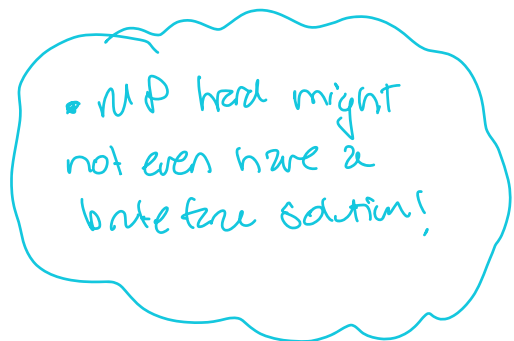 • NP hard might
not even have a
brute force solution!